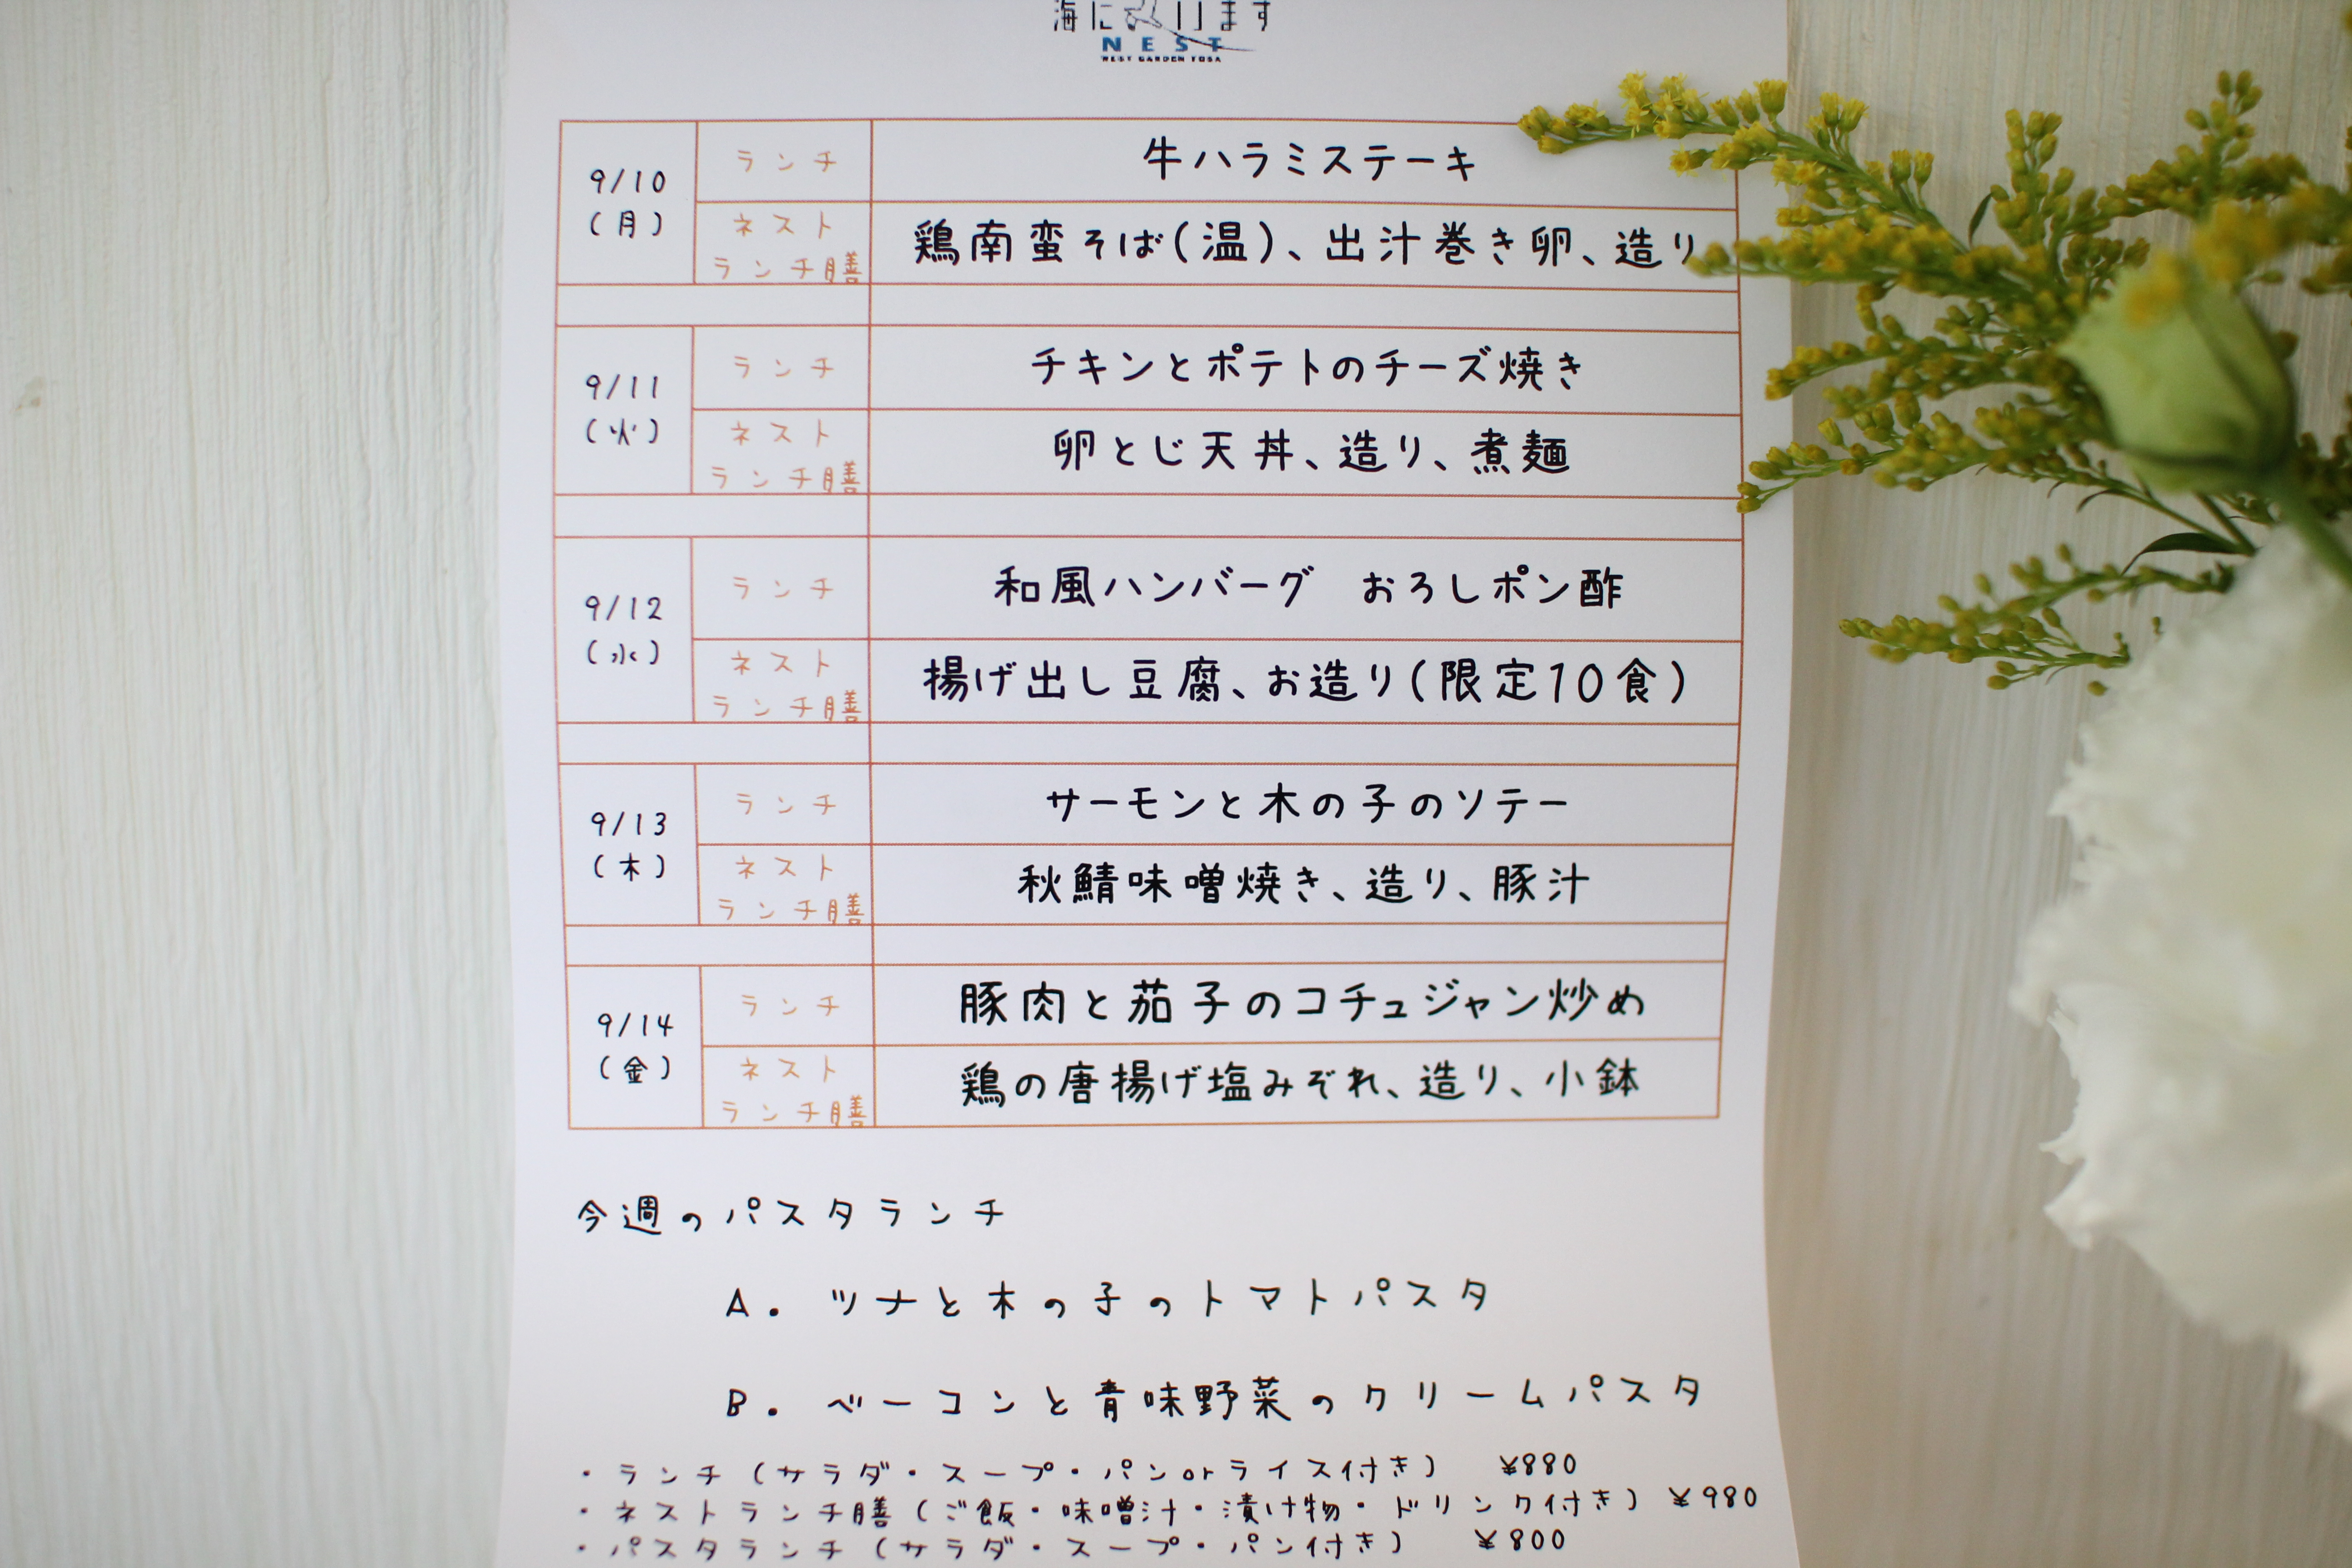 NEST
WEST GARDEN TOSA
9/10
(月)
ランチ
牛ハラミステーキ
ネスト
ランチ膳
鶏南蛮そば(温)、出汁巻き卵、造り
9/11
(火)
ランチ
チキンとポテトのチーズ焼き
ネスト
ランチ膳
卵とじ天丼、造り、煮麺
9/12
(水)
ランチ
和風ハンバーグ　おろしポン酢
ネスト
ランチ膳
揚げ出し豆腐、お造り(限定10食)
9/13
(木)
ランチ
サーモンと木の子のソテー
ネスト
ランチ膳
秋鯖味噌焼き、造り、豚汁
9/14
(金)
ランチ
豚肉と茄子のコチュジャン炒め
ネスト
ランチ膳
鶏の唐揚げ塩みぞれ、造り、小鉢
今週のパスタランチ
A. ツナと木の子のトマトパスタ
B. ベーコンと青味野菜のクリームパスタ
・ランチ(サラダ・スープ・パンorライス付き)　¥880
・ネストランチ膳(ご飯・味噌汁・漬け物・ドリンク付き) ¥980
・パスタランチ(サラダ・スープ・パン付き)　¥800